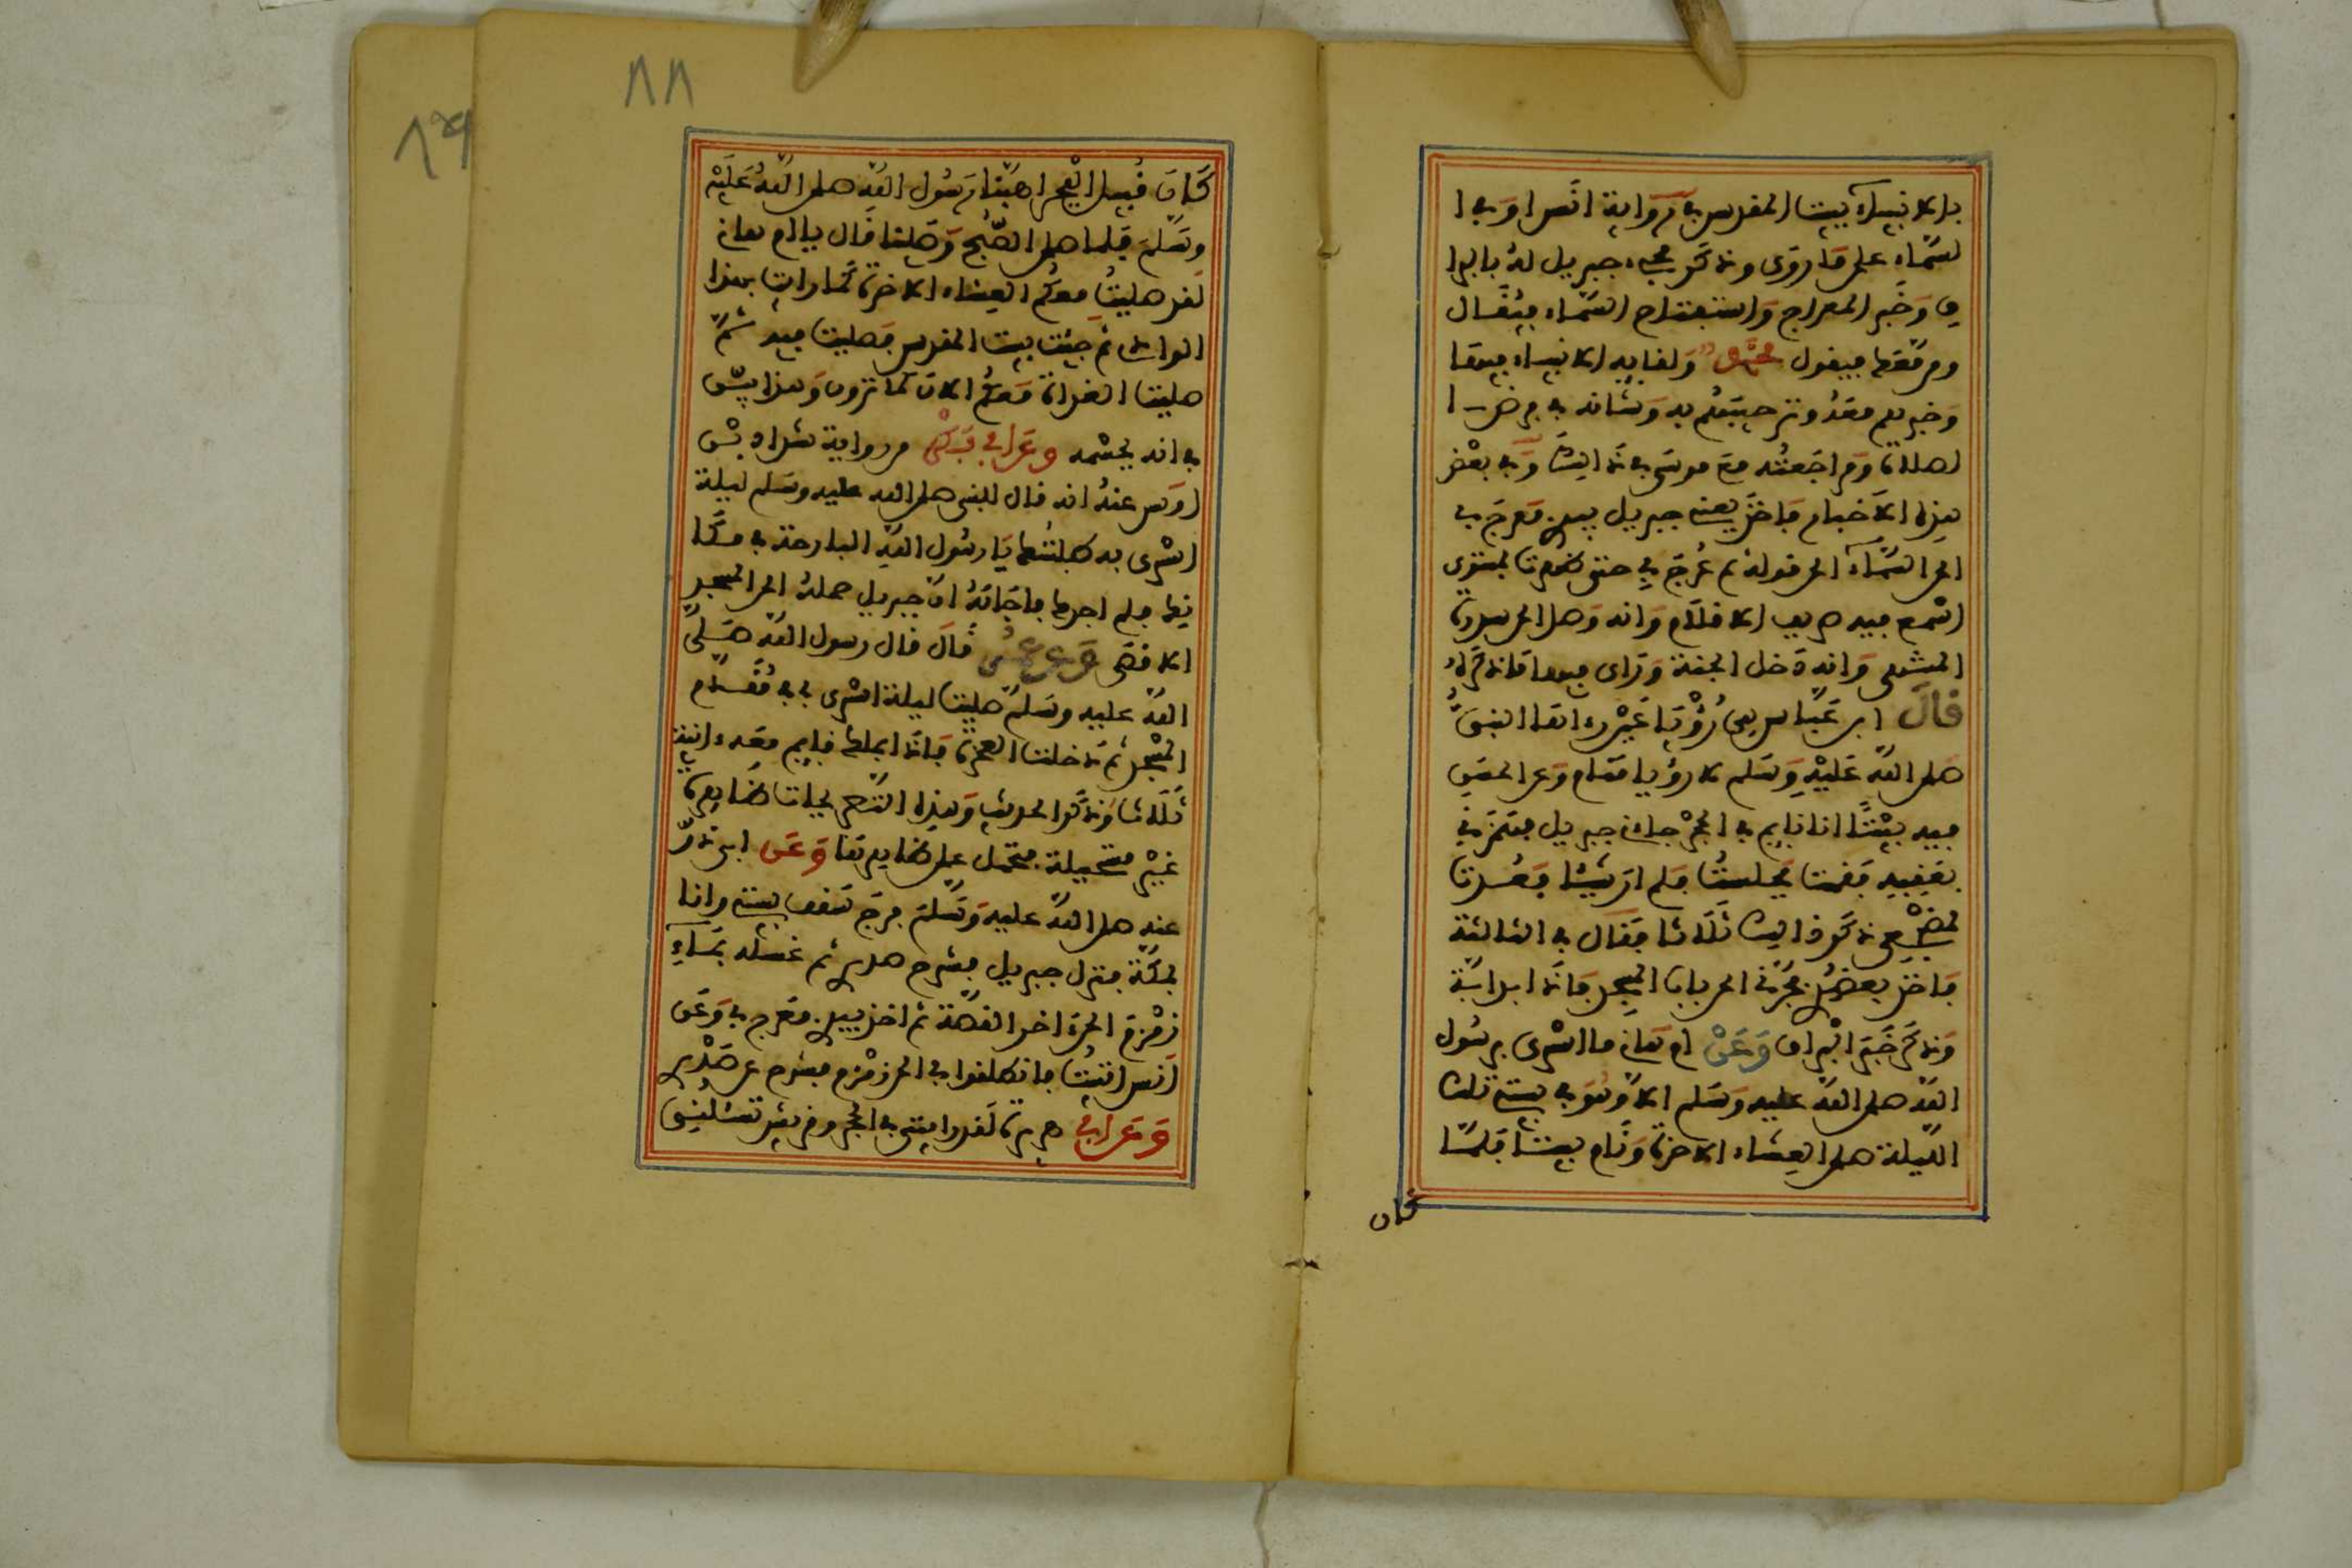 بالانبيآء ببيت المقدس في رواية انس او في ا
لسماء على ما روى وذكر مجيء جبريل له بالبرا
ق وخبر المعراج واستفتاح السماء فيقال
ومن معك فيقول محمد ولقايه الانبياء فيها
وخبرهم معه وترحيبهم به وشانه في فرض ا
لصلاة ومراجعته مع موسى في ذالك وفي بعض
هذه الاخبار فاخذ يعني جبريل بيدي فعرج بي
الى السمآء الى قوله ثم عرج بي حتى ظهرت لمستوى
اسمع فيه صريف الاقلام وانه وصل الى سدرة
المنتهى وانه دخل الجنة وراى فيها ما ذكره
قال ابن عباس هي رؤيا عين رءاها النبي
صلى الله عليه وسلم لا رؤيا منام وعن الحسن
فيه بينا انا نايم في الحجر جاءني جبريل فهمزني
بعقبيه فقمت فجلست فلم ار شيئا فعدت
لمضجعي ذكر ذالك ثلاثا فقال في الثالثة
فاخذ بعضدي فجرني الى باب المسجد فاذا بدابة
وذكر خبر البراق وعن ام هانئ ما اسرى برسول
الله صلى الله عليه وسلم الا وهو في بيتي تلك
الليلة صلى العشاء الاخرة ونام بيننا فلما
كان
٨٨
٨٩
كان قبيل الفجر اهبنا رسول الله صلى الله عليه
وسلم فلما صلى الصبح وصلينا قال يا ام هانئ
لقد صليت معكم العشاء الاخرة كما رايت بهذا
الوادي ثم جئت بيت المقدس فصليت فيه ثم
صليت الغداة معكم الان كما ترون وهذا بين
في انه بجسمه وعن ابي بكر من رواية شداد بن
اوس عنه انه قال للنبي صلى الله عليه وسلم ليلة
اسرى به طلبتك يا رسول الله البارحة في مكا
نك فلم اجدك فاجابه ان جبريل حمله الى المسجد
الاقصى وعن عمر قال قال رسول الله صلى
الله عليه وسلم صليت ليلة اسرى بي في مقدم
المسجد ثم دخلت الصخرة فاذا بملك قايم معه ءانية
ثلاثا وذكر الحديث وهذه التصريحات ظاهرة
غير مستحيلة فتحمل على ظاهرها وعن ابي ذر
عنه صلى الله عليه وسلم فرج سقف بيتي وانا
بمكة فنزل جبريل فشرح صدري ثم غسله بمآء
زمزم الى ءاخر القصة ثم اخذ بيدي فعرج بي وعن
انس اتيت فانطلقوا بي الى زمزم فشرح عن صدري
وعن ابي هريرة لقد رايتني في الحجر وقريش تسئلني